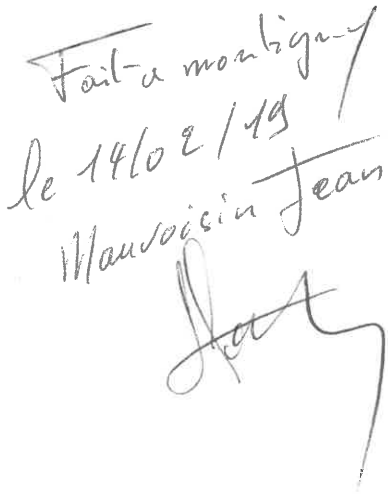 Fait a montigny
le 14/02/19
Mauvoisin Jean